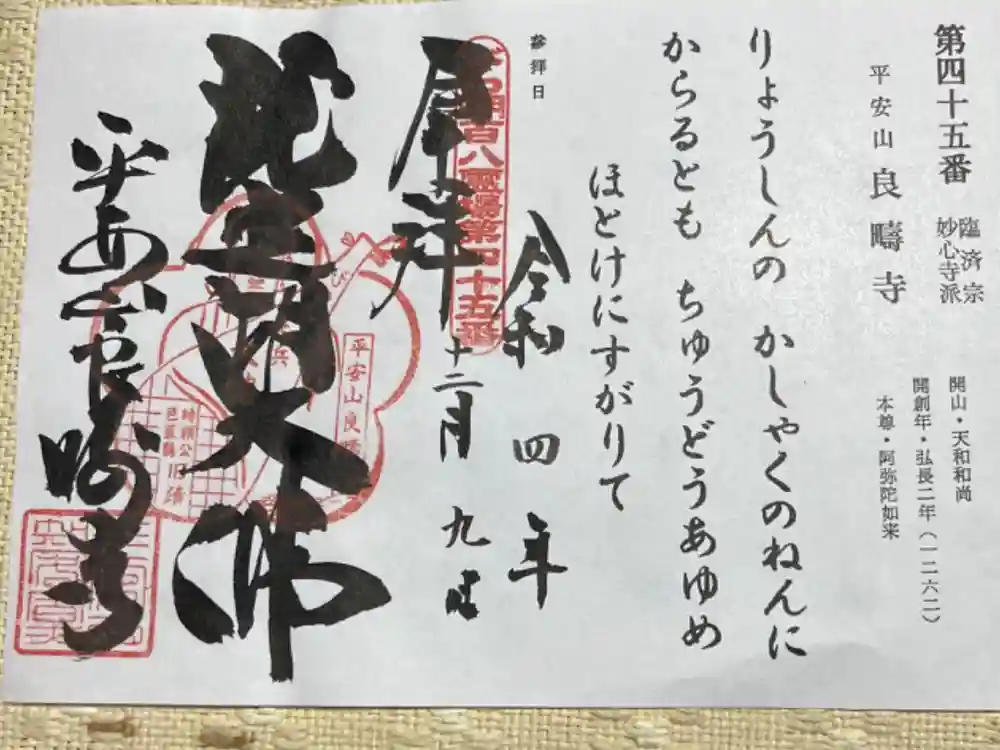 第四十五番
臨済宗
妙心寺派
平安山 良疇寺
開山・天和和尚
開創年・弘長二年(一二六二)
本尊・阿弥陀如来
りょうしんの かしゃくのねんに
からるとも ちゅうどうあゆめ
ほとけにすがりて
参拝日
令和四年
十二月九日
奉拝
びわ湖百八霊場第四十五番
毘盧遮大佛
平安山良疇寺
平安山良疇